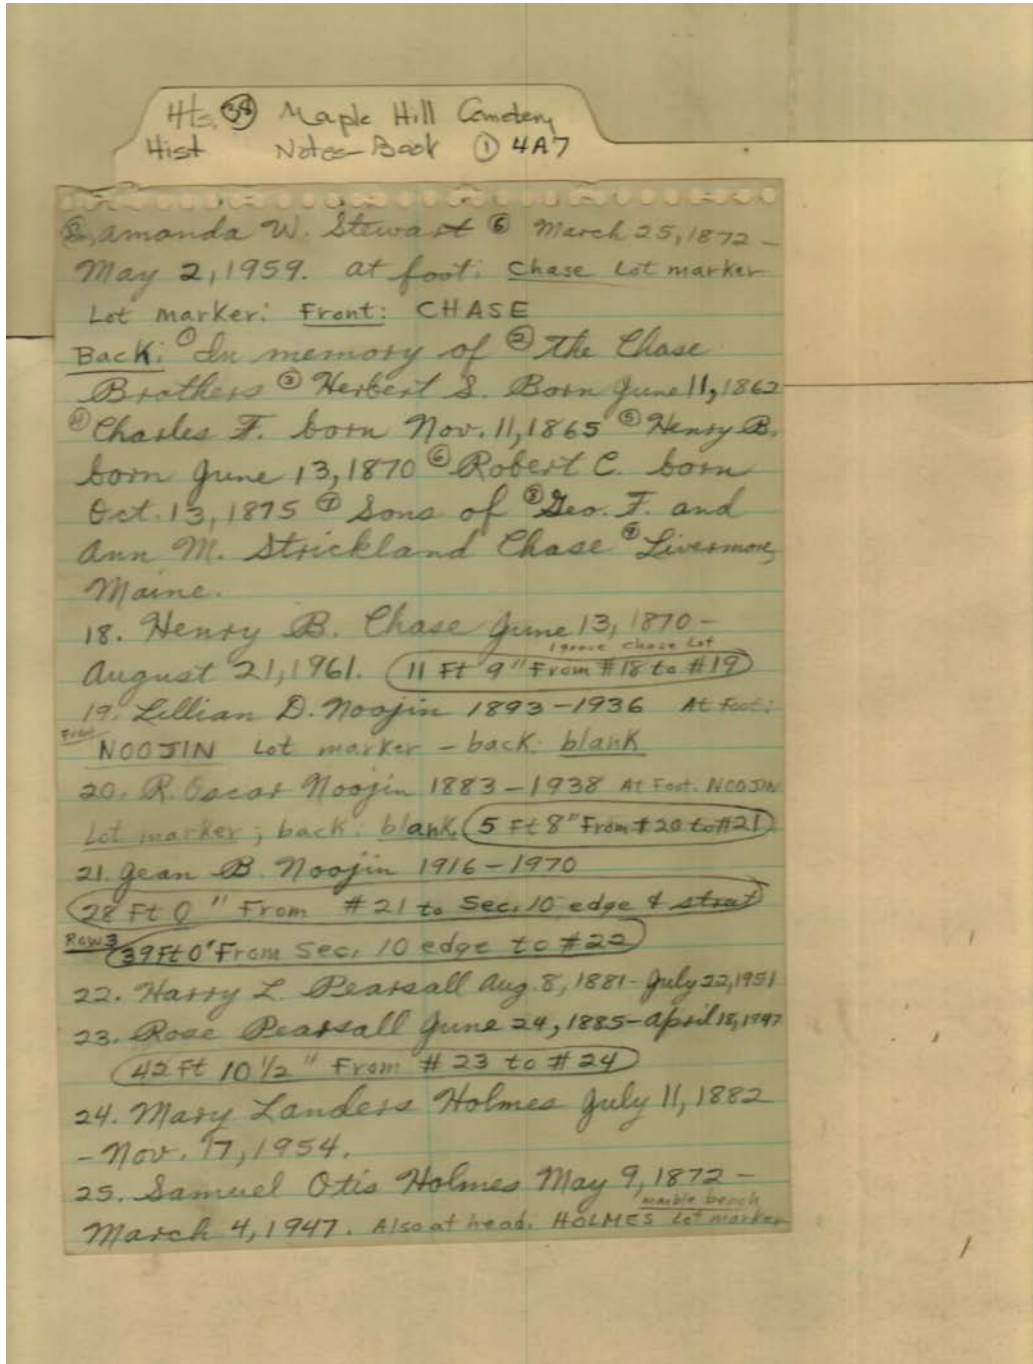 Hts. (38) Maple Hill Cemetery
Hist Notes-Book ① 4A7
⑤ Amanda W. Stewart ⑥ March 25, 1872 –
May 2, 1959. at foot: Chase Lot marker
Lot marker: Front: CHASE
Back: ① In memory of ② the Chase
Brothers ③ Herbert S. Born June 11, 1862
④ Charles F. born Nov. 11, 1865 ⑤ Henry B.
born June 13, 1870 ⑥ Robert C. born
Oct. 13, 1875 ⑦ Sons of ⑧ Geo. F. and
Ann M. Strickland Chase ⑨ Livermore,
Maine.
18. Henry B. Chase June 13, 1870 –
1 grave Chase Lot
August 21, 1961. 11 Ft 9" From #18 to #19
19. Lillian D. Noojin 1893 – 1936 At Foot:
Front
NOOJIN Lot marker – back: blank
20. R. Oscar Noojin 1883 – 1938 At Foot: NOOJIN
Lot marker; back: blank 5 Ft 8" From #20 to #21
21. Jean B. Noojin 1916 – 1970
28 Ft 0" From #21 to Sec. 10 edge & street
Row 3 39 Ft 0" From Sec. 10 edge to #22
22. Harry L. Pearsall Aug. 8, 1881 - July 22, 1951
23. Rose Pearsall June 24, 1885 – April 18, 1947
42 Ft 10 1/2" From #23 to #24
24. Mary Landers Holmes July 11, 1882
– Nov. 17, 1954.
25. Samuel Otis Holmes May 9, 1872 –
marble bench
March 4, 1947. Also at head. HOLMES Lot marker